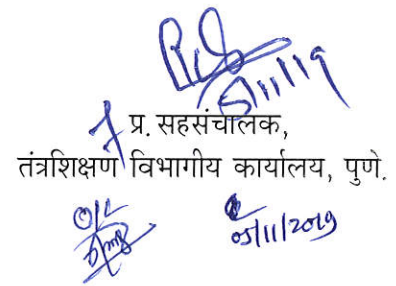 5/11/19
प्र. सहसंचालक,
तंत्रशिक्षण विभागीय कार्यालय, पुणे.
05/11/2019